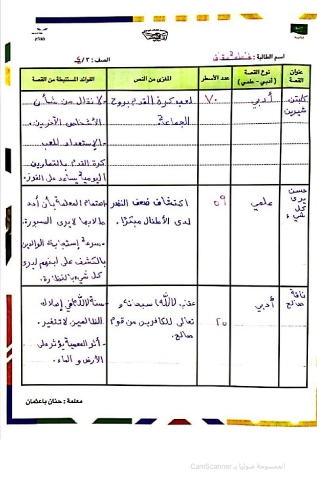 اسم الطالبة :
الصف : ٦/٣
عنوان القصة
نوع القصة
(أدبي - علمي)
عدد الأسطر
المغزى من النص
الفوائد المستنبطة من القصة
كابتن
شيرين
أدبي
٧٠
لعب كرة القدم بروح
الجماعة
- لا نقلل من شأن
الأشخاص الآخرين.
- الاستعداد للعب
كرة القدم بالتمارين
اليومية يساعد على الفوز.
حسن
يرى
كل
شيء
علمي
٥٩
اكتشاف ضعف النظر
لدى الأطفال مبكرًا.
- اهتمام المعلمة بأن أحد
طلابها لا يرى السبورة.
- سرعة استجابة الوالدين
بالكشف على ابنهم ليرى
كل شيء بالنظارة.
ناقة
صالح
أدبي
٢٥
عقاب الله سبحانه و
تعالى للكافرين من قوم
صالح.
- سنة الله في إهلاك
الظالمين لا تتغير.
- أثر المعصية يؤثر على
الأرض و الماء.
معلمة : حنان باعثمان
الممسوحة ضوئيا بـ CamScanner